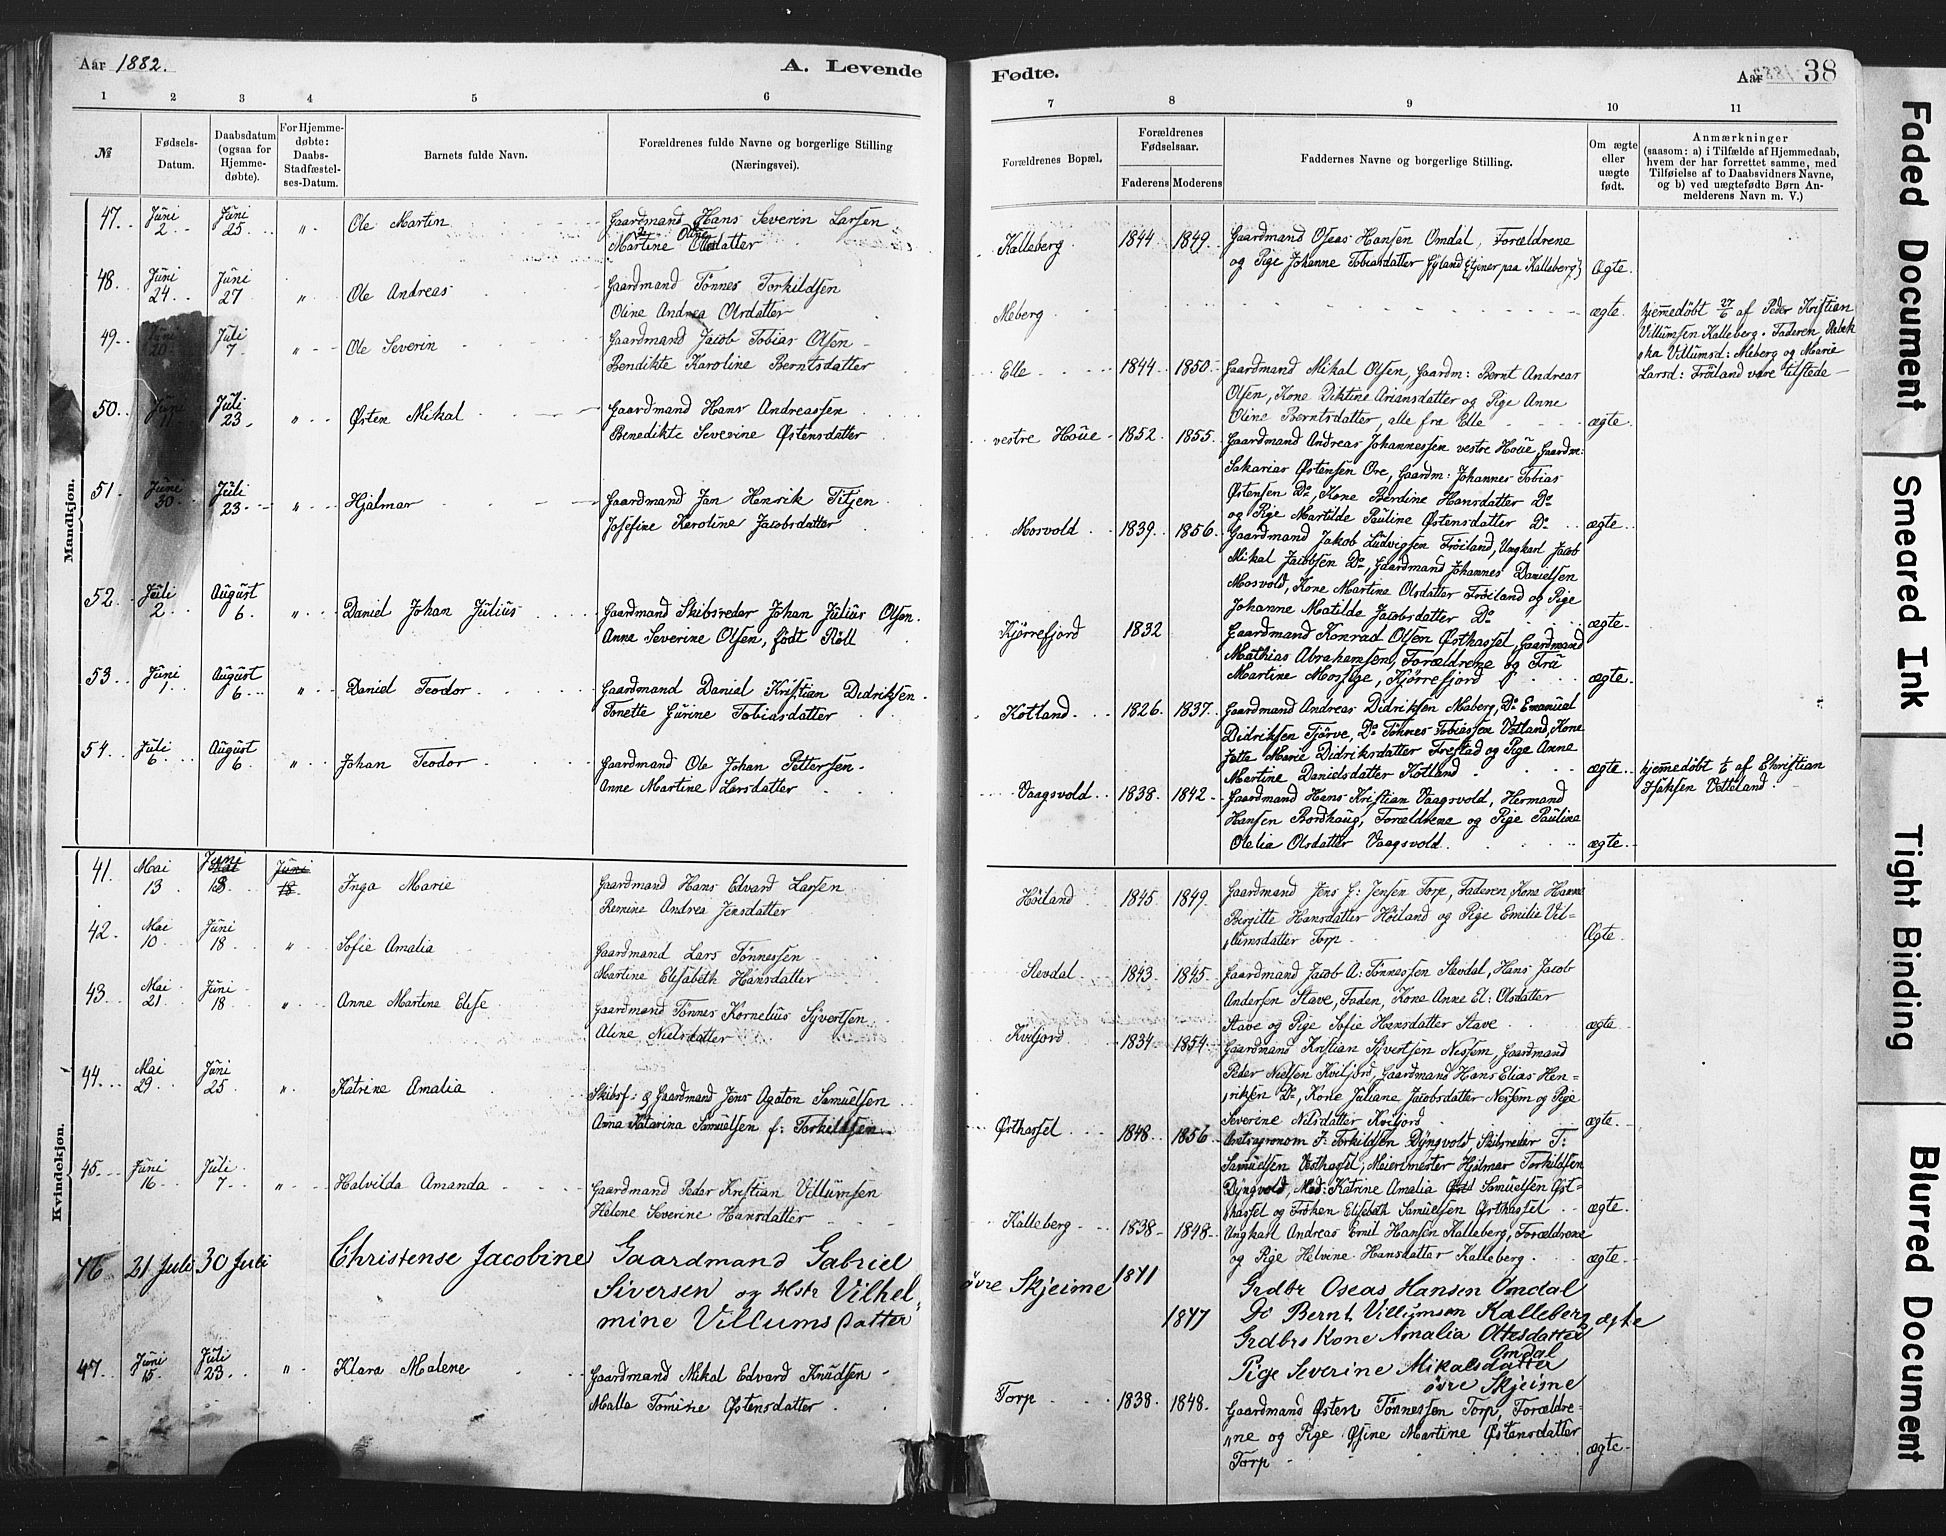 Aar 1882.
A. Levende
1 2 3 4 5 6
№
Fødsels-
Datum.
Daabsdatum
(ogsaa for
Hjemme-
døbte).
For Hjemme-
døbte:
Daabs-
Stadfæstel-
ses-Datum.
Barnets fulde Navn.
Forældrenes fulde Navne og borgerlige Stilling
(Næringsvei).
Mandkjøn.
47. Juni 2 Juni 25 " Ole Martin Gaardmand Hans Severin Larsen
Martine Oline Olsdatter
48. Juni 24 Juni 27 " Ole Andreas Gaardmand Tønnes Torkildsen
Oline Andrea Olsdatter
49. Juni 20 Juli 7 " Ole Severin Gaardmand Jacob Tobias Olsen
Bendikte Karoline Berntsdatter
50. Juni 11 Juli 23 " Østen Mikal Gaardmand Hans Andreassen
Benedikte Severine Østensdatter
51. Juni 30 Juli 23 " Hjalmar Gaardmand Jan Henrik Titjen
Josefine Karoline Jacobsdatter
52. Juli 2 August 6 " Daniel Johan Julius Gaardmand Skibsreder Johan Julius Olsen
Anne Severine Olsen, født Röll
53. Juni 1 August 6 " Daniel Teodor Gaardmand Daniel Kristian Didriksen
Tonette Gurine Tobiasdatter
54. Juli 6 August 6 " Johan Teodor Gaardmand Ole Johan Pettersen
Anne Martine Larsdatter
Kvindekjøn.
41. Mai 13 Juni 18 Juni 18 Inga Marie Gaardmand Hans Edvard Larsen
Remine Andrea Jensdatter
42. Mai 10 Juni 18 " Sofie Amalia Gaardmand Lars Tönnessen
Martine Elisabeth Hansdatter
43. Mai 21 Juni 18 " Anne Martine Elise Gaardmand Tönnes Kornelius Syvertsen
Aline Nielsdatter
44. Mai 29 Juni 25 " Katrine Amalia Skibsf: og Gaardmand Jens Agaton Samuelsen
Anna Katarina Samuelsen f: Torkildsen
45. Juni 16 Juli 7 " Halvilda Amanda Gaardmand Peder Kristian Villumsen
Helene Severine Hansdatter
46 21 Juli 30 Juli Christense Jacobine Gaardmand Gabriel
Siversen og Hstr Vilhel
mine Villums datter
47. Juni 15 Juli 23 " Klara Malene Gaardmand Mikal Edvard Knudsen
Malla Tomine Østensdatter
Fødte.
Aar 1882
38
7 8 9 10 11
Forældrenes Bopæl.
Forældrenes
Fødselsaar.
Faderens Moderens
Faddernes Navne og borgerlige Stilling.
Om ægte
eller
uægte
født.
Anmærkninger
(saasom: a) i Tilfælde af Hjemmedaab,
hvem der har forrettet samme, med
Tilføielse af to Daabsvidners Navne,
og b) ved uægtefødte Børn An-
melderens Navn m. V.)
Kalleberg 1844 1849 Gaardmand Oseas Hansen Omdal, Forældrene
og Pige Johanne Tobiasdatter Gyland (tjener paa Kalleberg) Ægte
Meberg ægte hjemedøbt 27/6 af Peder Kristian
Villumsen Kalleberg. Faderen
Villumsd: Meberg og Marie
Larsd: Fröiland vare tilstede
Elle 1844 1850 Gaardmand Mikal Olsen, Gaardm: Bernt Andreas
Olsen, Kone Diktine Ariansdatter og Pige Anne
Oline Berntsdatter, alle fra Elle ægte
vestre Houe 1852 1855 Gaardmand Andreas Johannessen vestre Houe, Gaardm:
Sakarias Østensen Ore, Gaardm: Johannes Tobias
Østensen Do, Kone Berdine Hansdatter Do
og Pige Martilde Pauline Østensdatter Do ægte
Mosvold 1839 1856 Gaardmand Jakob Ludvigsen Fröiland, Ungkarl Jacob
Mikal Jacobsen Do, Gaardmand Johannes Danielsen
Mosvold, Kone Martine Olsdatter Fröiland og Pige
Johanne Matilda Jacobsdatter Do ægte
Kjörrefjord 1832 Gaardmand Konrad Olsen Østhassel, Gaardmand
Mathias Abrahamsen, Forældrene og Fru
Martine Mossige, Kjörrefjord ægte
Kotland 1826 1837 Gaardmand Andreas Didriksen Maberg, Do Emanuel
Didriksen Tjörve, Do Tönnes Tobiassen Vatland, Kone
Jette Marie Didriksdatter Frestad og Pige Anne
Martine Danielsdatter Kotland ægte hjemedøbt af Christian
Isaksen Vetteland
Vaagsvold 1838 1842 Gaardmand Hans Kristian Vaagsvold, Hermand
Hansen Bordhaug, Forældrene og Pige Pauline
Otelia Olsdatter Vaagsvold ægte
Höiland 1845 1849 Gaardmand Jens G: Jensen Torp, Faderen, Kone Hanne
Birgitte Hansdatter Höiland og Pige Emilie Vil=
lumsdatter Torp Ægte
Slevdal 1843 1845 Gaardmand Jacob A: Tönnessen Slevdal, Hans Jacob
Andersen Stave, Faderen, Kone Anne El: Olsdatter
Stave og Pige Sofie Hansdatter Stave ægte
Kviljord 1834 1854 Gaardmand Kristian Syvertsen Nessem, Gaardmand
Peder Nielsen Kviljord, Gaardmand Hans Elias Hen=
riksen Do, Kone Juliane Jacobsdatter Nessem og Pige
Severine Nilsdatter Kviljord ægte
Østhassel 1848 1856 Amtsagronom J: Torkildsen Dyngvold, Skibsreder T:
Samuelsen Vesthassel, Meierimester Hjalmar Torkildsen
Dyngvold, Mad: Katrine Amalia Samuelsen Øst=
hassel og Fröken Elisabeth Samuelsen Østhassel ægte
Kalleberg 1838 1848 Ungkarl Andreas Emil Hansen Kalleberg, Forældrene
og Pige Helvine Hansdatter Kalleberg ægte
övre Skjeime 1841 1847 Grdbr Oseas Hansen Omdal
Do Bernt Villumsen Kalleberg ægte
Grdbrs Kone Amalia Ottesdatter
Omdal
Pige Severine Mikalsdatter
övre Skjeime
Torp 1838 1848 Gaardmand Østen Tönnessen Torp, Forældre=
ne og Pige Øsine Martine Østensdatter
Torp ægte
Faded Document
Smeared Ink
Tight Binding
Blurred Document